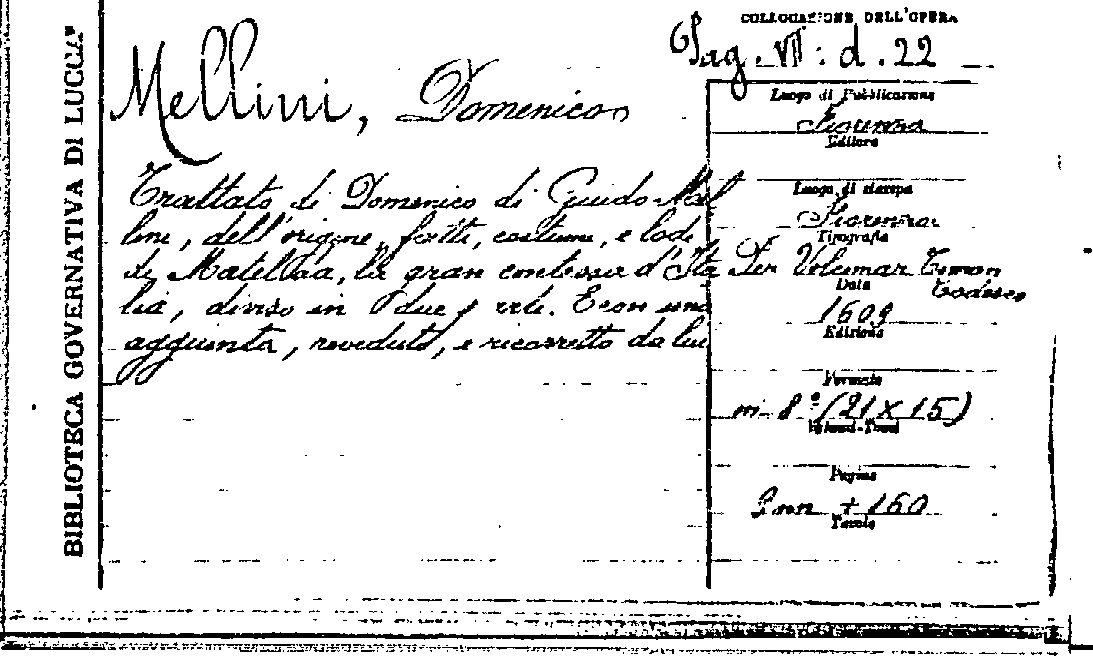 BIBLIOTECA GOVERNATIVA DI LUCCA
COLLOCAZIONE DELL'OPERA
Pag. VII: d. 22
Mellini, Domenico
Trattato di Domenico di Guido Mel
lini, dell'origine, fatti, costumi, e lodi
di Matelda, la gran contessa d'Ita
lia, diviso in due parti. E con una
aggiunta, reveduto, e ricorretto da lui
Luogo di Pubblicazione
Fiorenza
Editore
Luogo di stampa
Fiorenza
Tipografia
Per Volcmar Timan
Todesco
Data
1609
Edizione
Formato
in 8° (21 x 15)
Volumi-Tomi
Pagine
nn + 160
Tavole